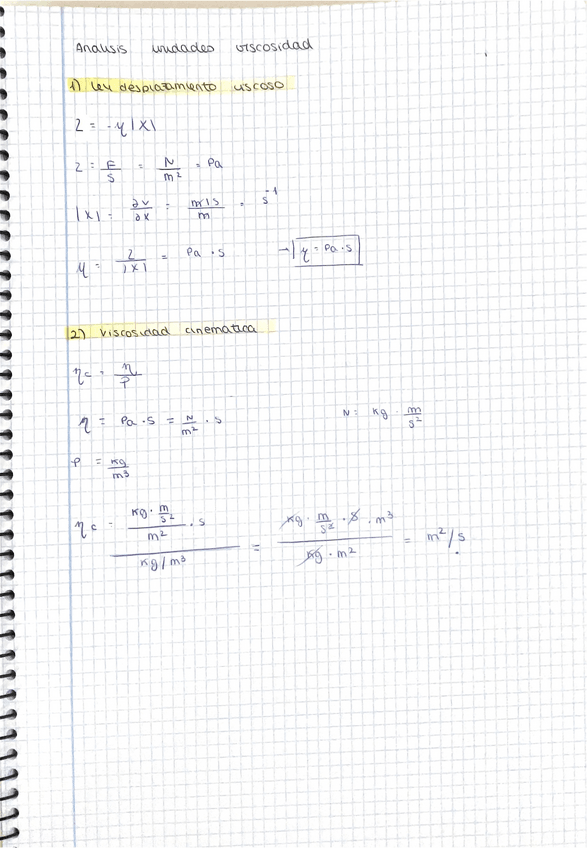 Analisis unidades viscosidad
1) Ley desplazamiento viscoso
Z = -η |X|
Z = F/S = N/m² = Pa
|X| = ∂v/∂x = m/s/m = s⁻¹
η = Z/|X| = Pa · s → η = Pa · s
2) Viscosidad cinematica
ηc = η/ρ
η = Pa · s = N/m² · s N = kg · m/s²
ρ = kg/m³
ηc = kg · m/s² / m² · s / kg/m³ = kg · m/s² · s · m³ / kg · m² = m²/s